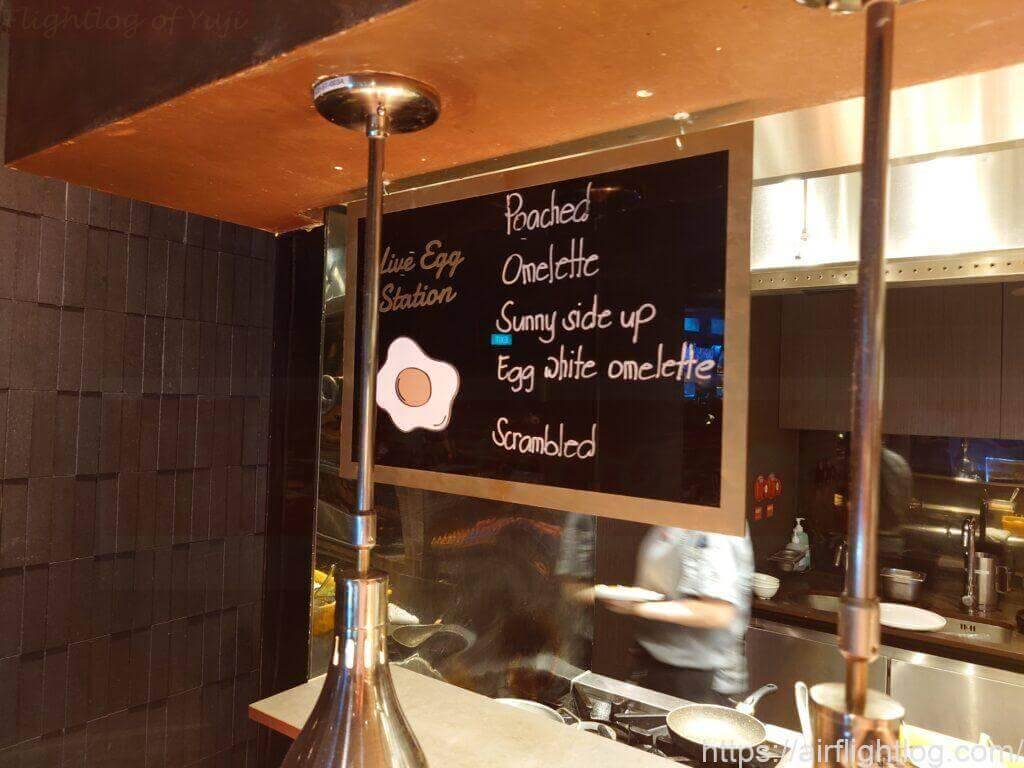 Flightlog of Yuji
Live Egg
Station
Poached
Omelette
Sunny side up
Egg white omelette
Scrambled
https://airflightlog.com/